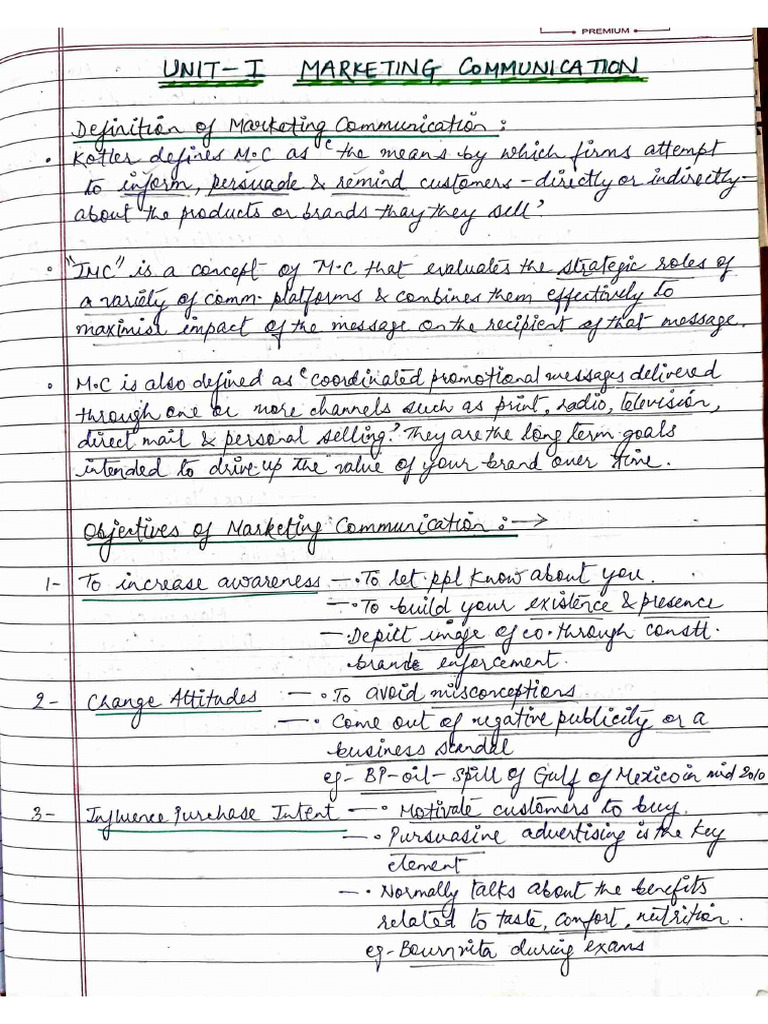 PREMIUM
UNIT-I MARKETING COMMUNICATION
Definition of Marketing Communication:
• Kotler defines M.C as 'the means by which firms attempt
to inform, persuade & remind customers - directly or indirectly -
about the products or brands thay they sell'
• "IMC" is a concept of M.C that evaluates the strategic roles of
a variety of comm. platforms & combines them effectively to
maximise impact of the message on the recipient of that message.
• M.C is also defined as 'coordinated promotional messages delivered
through one or more channels such as print, radio, television,
direct mail & personal selling.' They are the long term goals
intended to drive up the value of your brand over time.
Objectives of Marketing Communication: →
1- To increase awareness - • To let ppl know about you.
- • To build your existence & presence
- • Depict image of co. through constt.
brand enforcement.
2- Change Attitudes - • To avoid misconceptions
- • Come out of negative publicity or a
business scandel
eg- BP-oil-spill of Gulf of Mexico in mid 2010
3- Influence Purchase Intent - • Motivate customers to buy.
- • Pursuasine advertising is the key
element
- • Normally talks about the benefits
related to taste, comfort, nutrition.
eg- Bournvita during exams